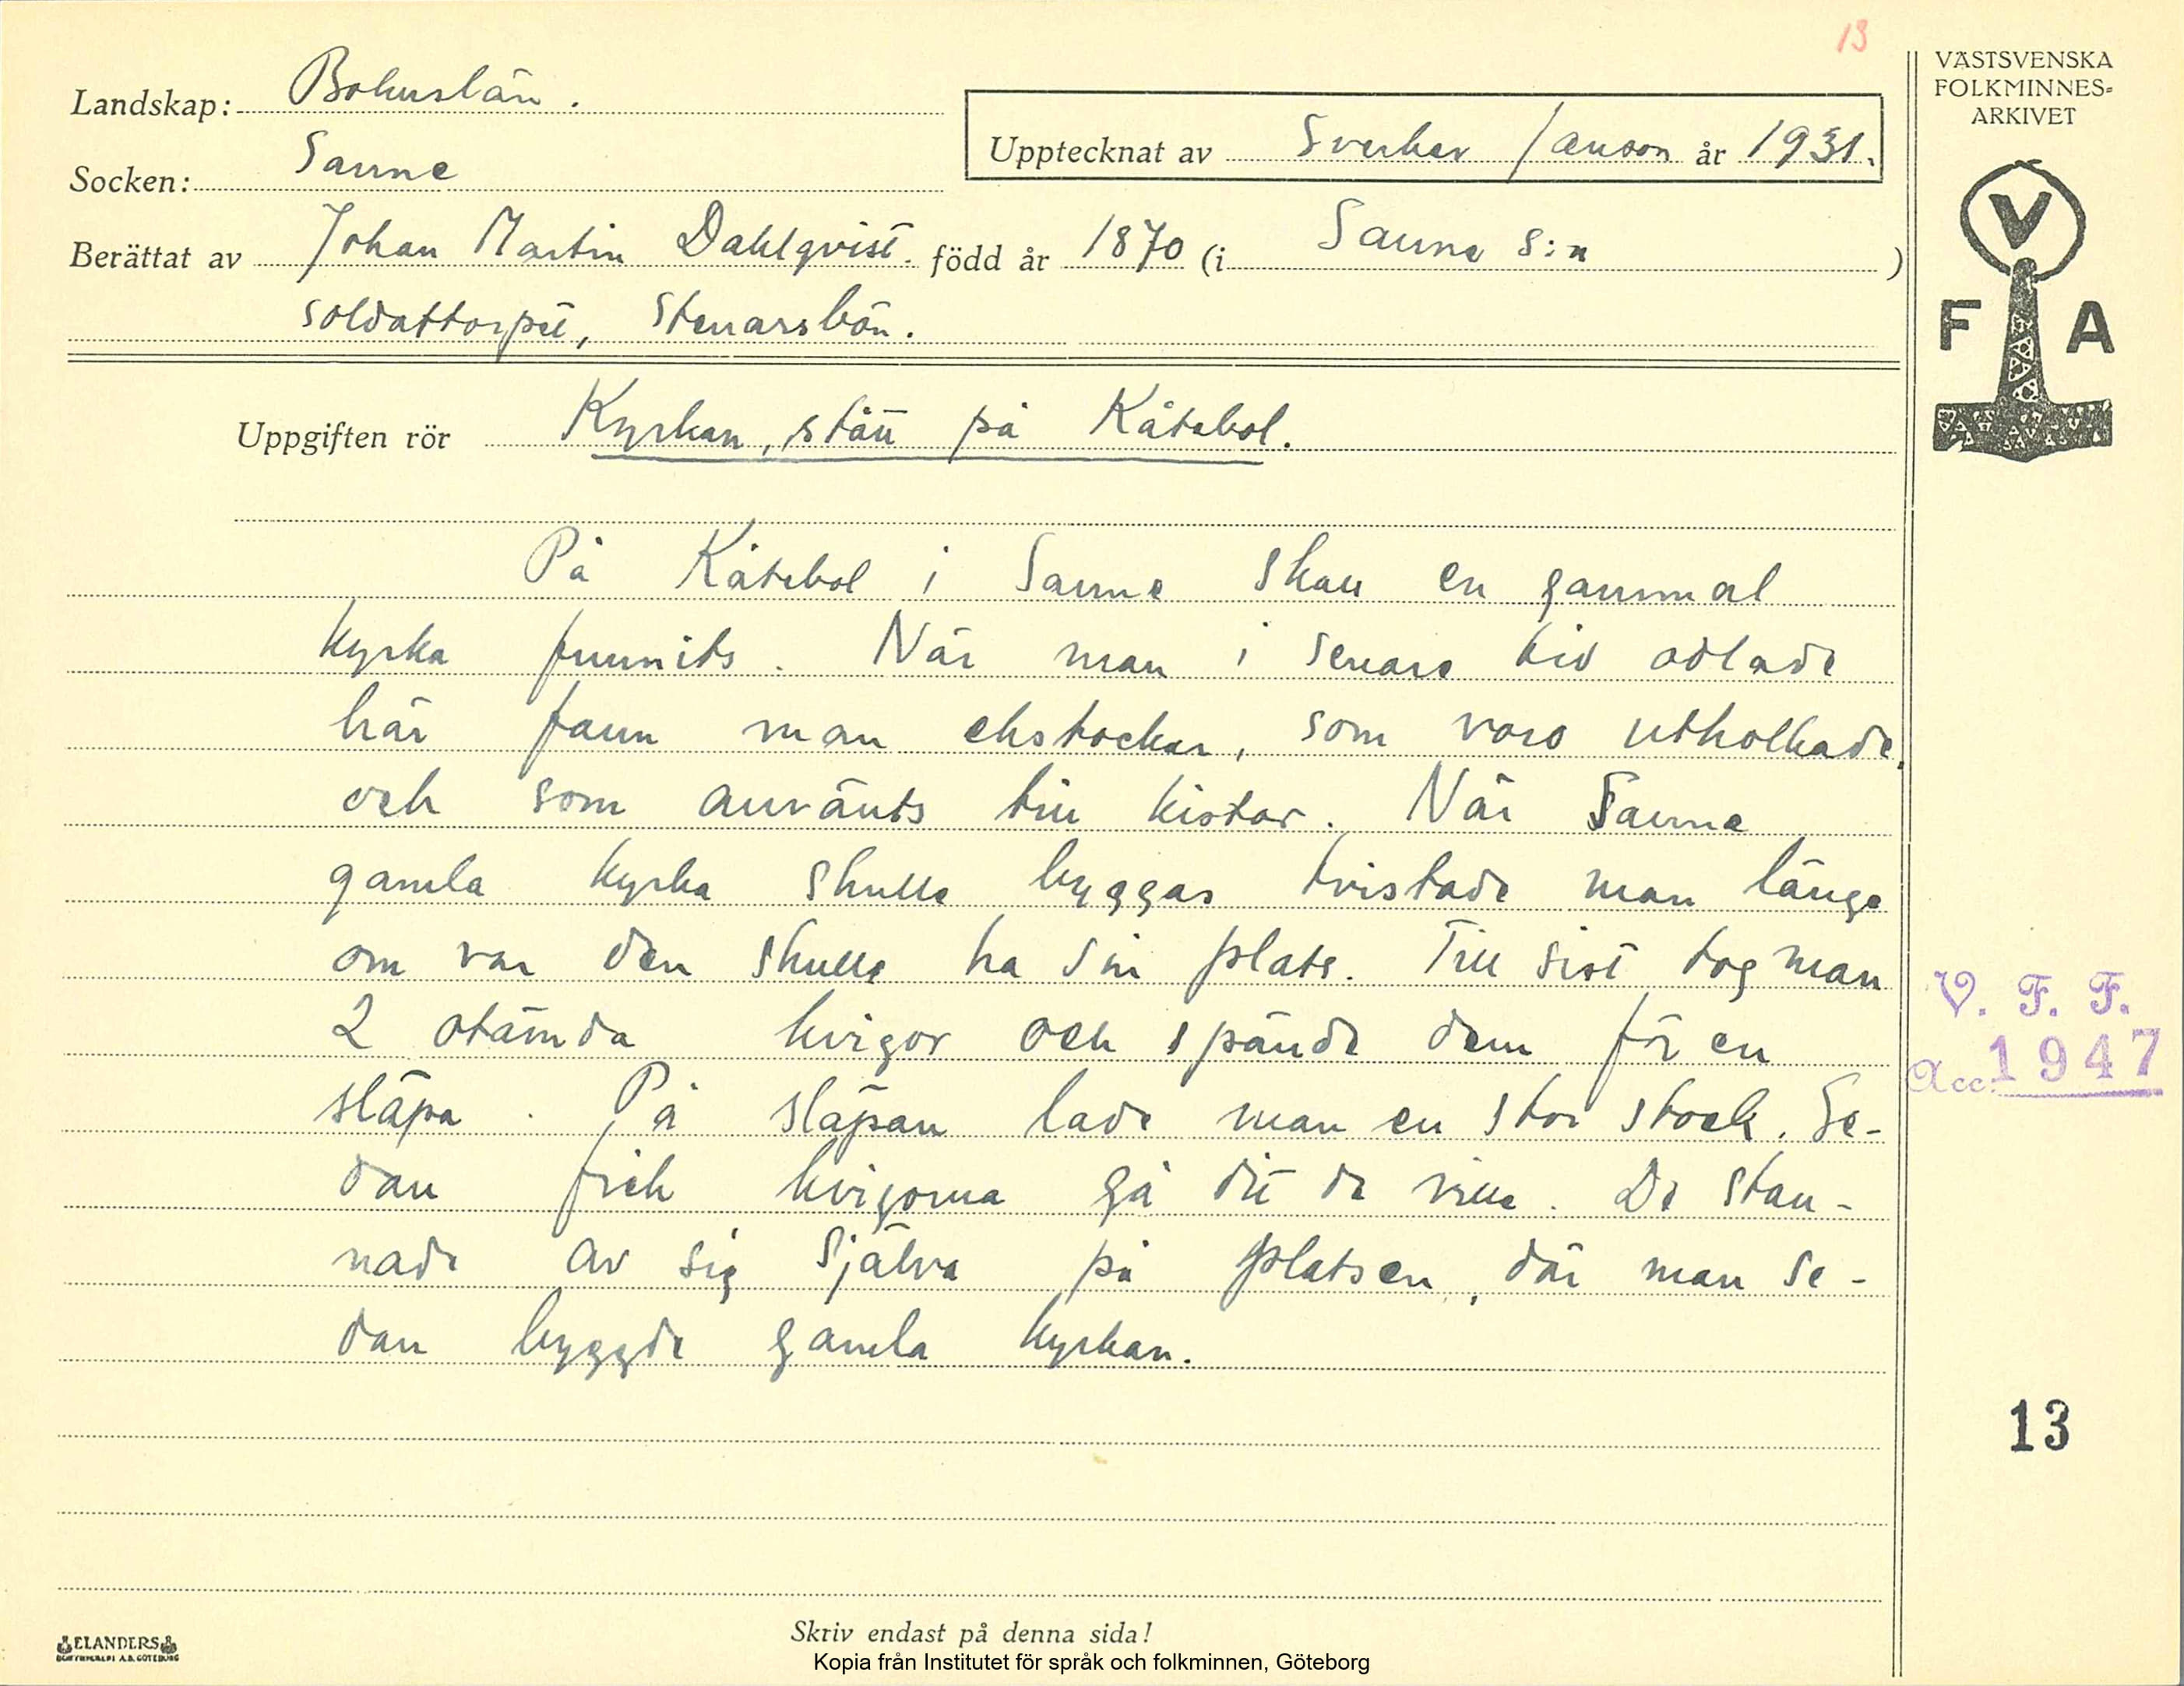 13
VÄSTSVENSKA
FOLKMINNES-
ARKIVET
Landskap: Bohuslän.
Upptecknat av Sverker Janson år 1931.
Socken: Sanne
Berättat av Johan Martin Dahlqvist. född år 1870 (i Sanne s:n )
soldattorpet, Stenarsbön.
V
F A
Uppgiften rör Kyrkan, stått på Kåtebol.
På Kåtebol i Sanne skall en gammal
kyrka funnits. När man i senare tid odlade
här fann man ekstockar, som voro utholkade,
och som använts till kistor. När Sanne
gamla kyrka skulle byggas tvistade man länge
om var den skulle ha sin plats. Till sist tog man
2 otämda kvigor och spände dem för en
släpa. På släpan lade man en stor stock. Se-
dan fick kvigorna gå dit de ville. De stan-
nade av sig själva på platsen, där man se-
dan byggde gamla kyrkan.
V. F. F.
Acc. 1947
13
Skriv endast på denna sida!
ELANDERS
BOKTRYCKERI A.B. GÖTEBORG
Kopia från Institutet för språk och folkminnen, Göteborg